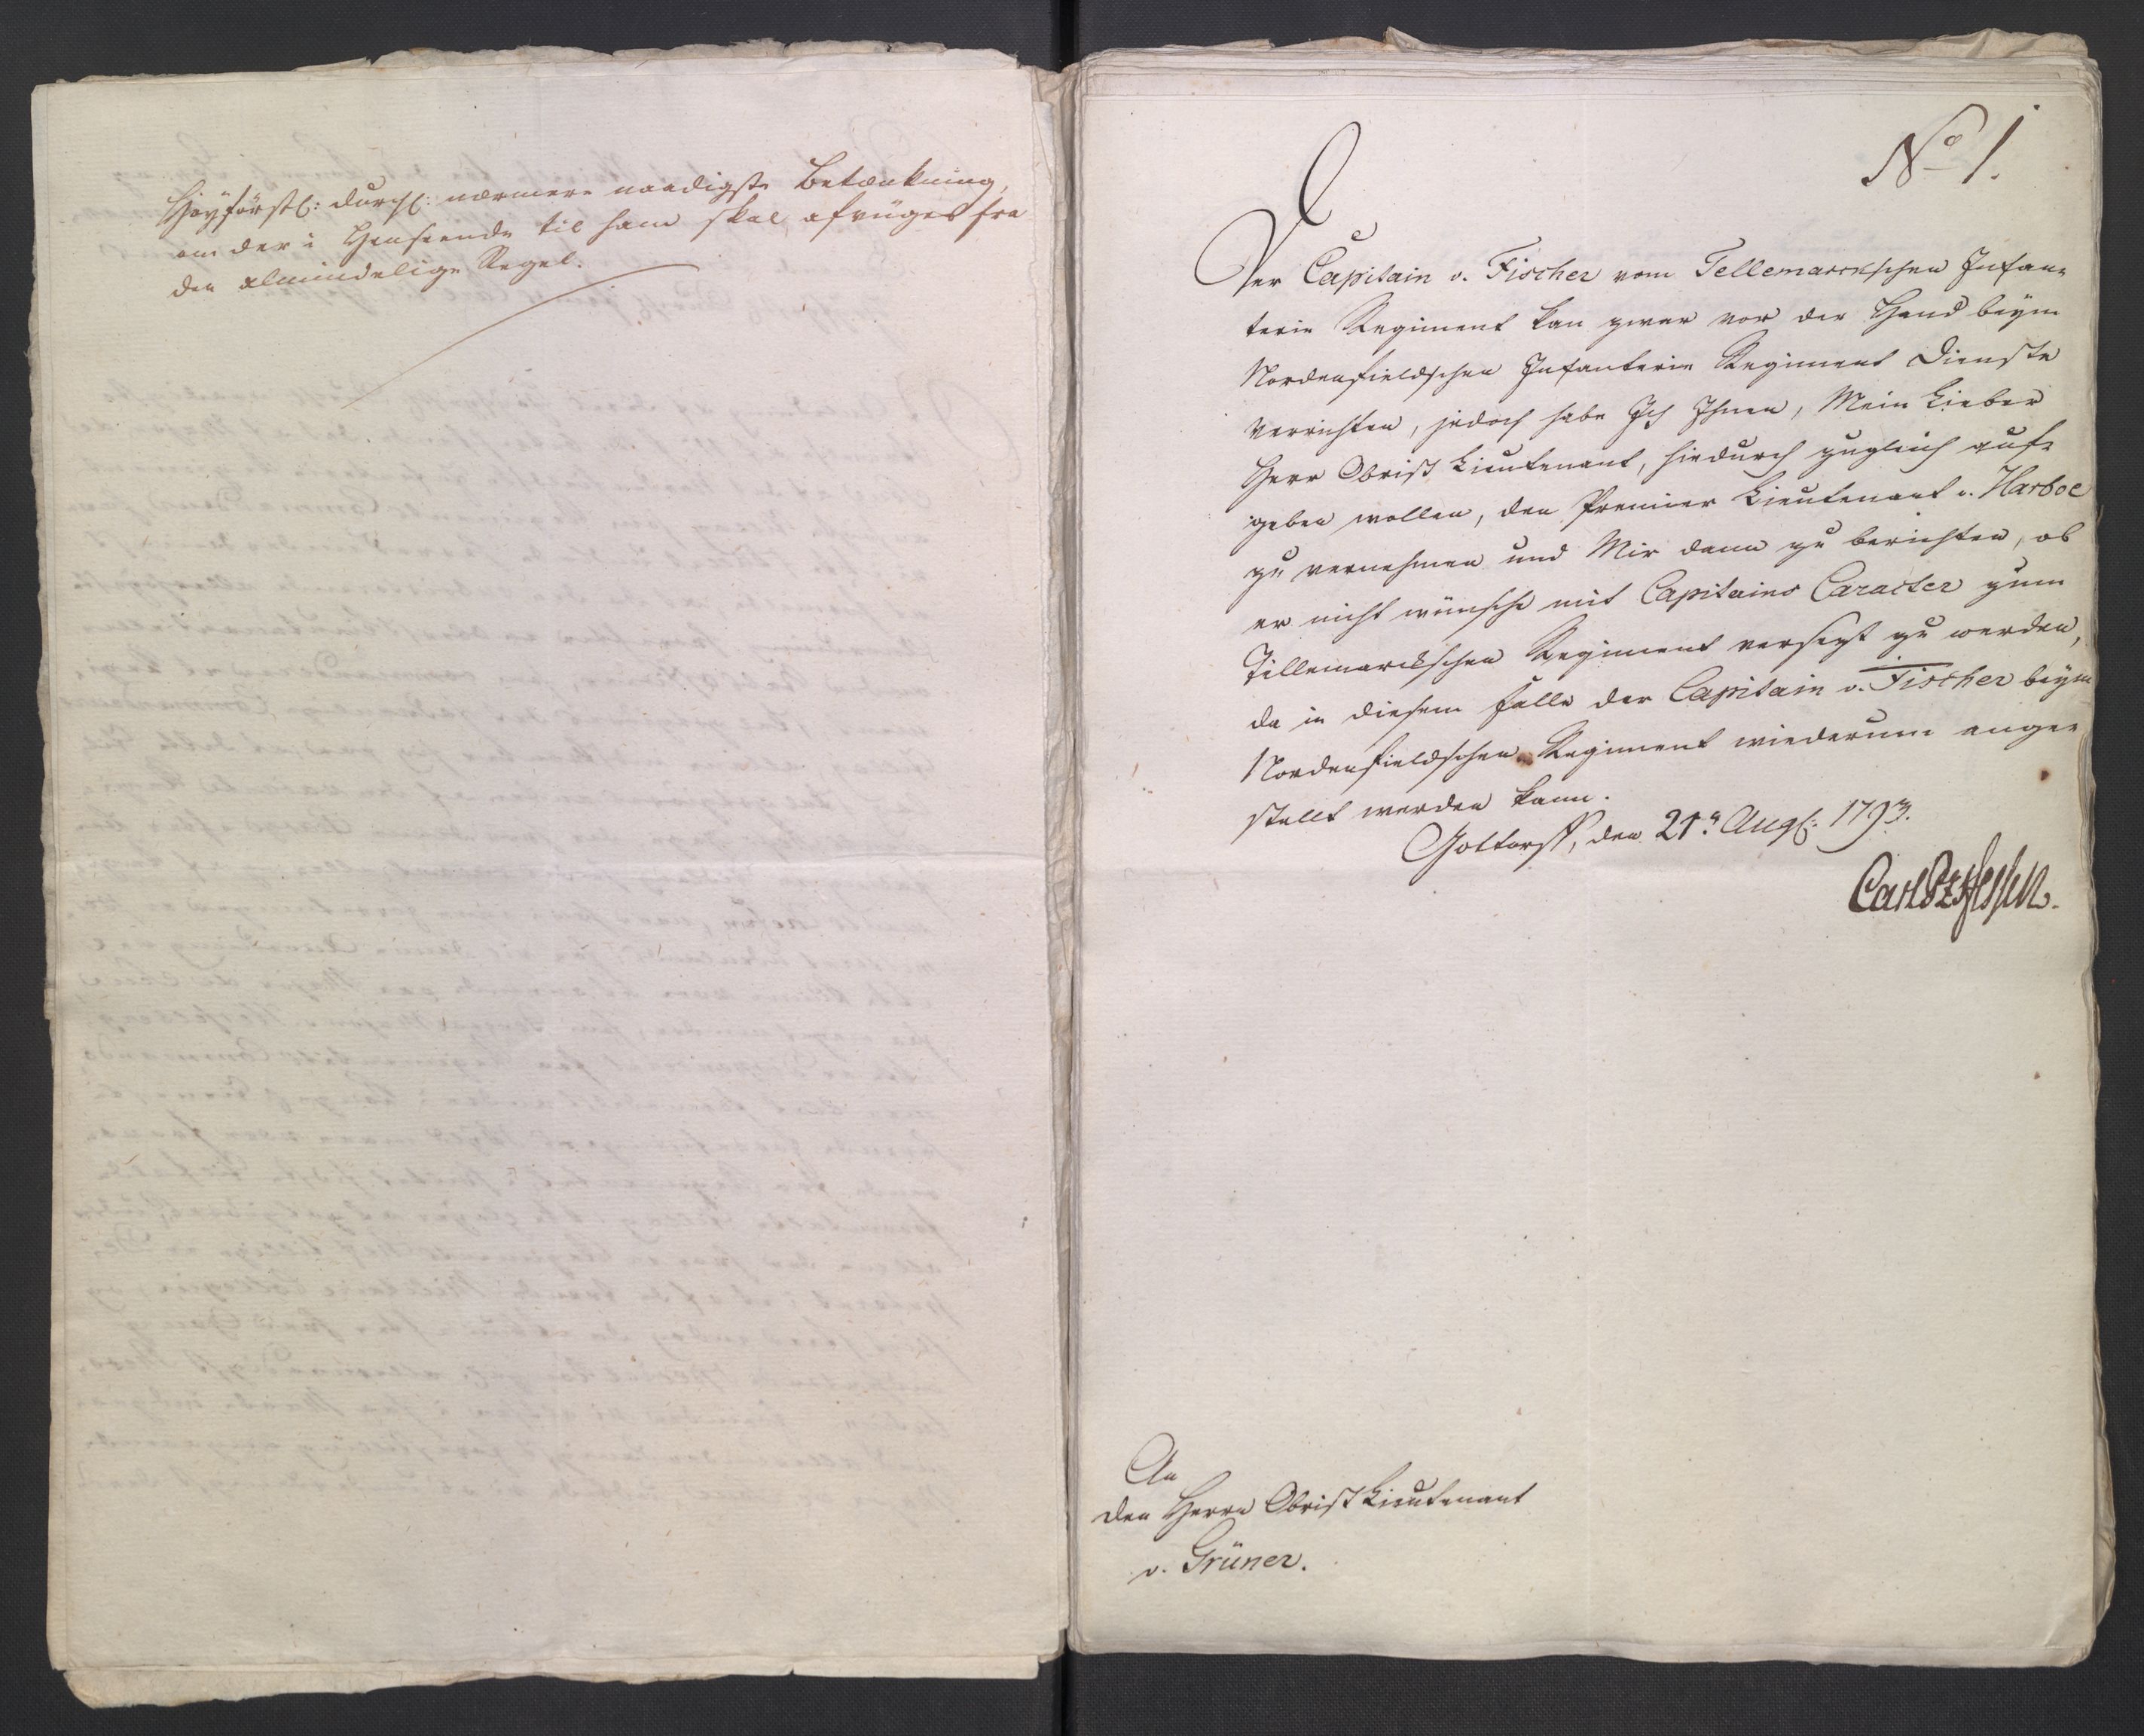 Høyfürstl: Durchl: nærmere naadigste Betænkning,
om der i Henseende til ham skal afviiges fra
den almindelige Regel.
No 1.
Der Capitain v. Fischer vom Tellemarckschen Infan-
terie Regiment kan zwar vor der Hand beym
Nordenfieldschen Infanterie Regiment Dienste
verrichten, jedoch habe Ich Ihnen, Mein Lieber
Herr Obrist Lieutenant, hiedurch zugleich auf-
geben wollen, den Premier Lieutenant v. Harboe
zu vernehmen und Mir dann zu berichten, ob
er nicht wünsche mit Capitains Caracter zum
Tellemarckschen Regiment versezt zu werden,
da in diesem Falle der Capitain v. Fischer beym
Nordenfieldschen Regiment wiederum ange-
stellt werden kann.
Gottorff, den 21n Augs: 1793.
Carl Pz Hessen.
An
den Herrn Obrist Lieutenant
v. Grüner.